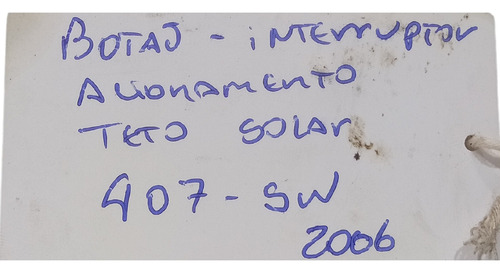 BOTAO - INTERRUPTOR
ACIONAMENTO
TETO SOLAR
407 - SW
2006